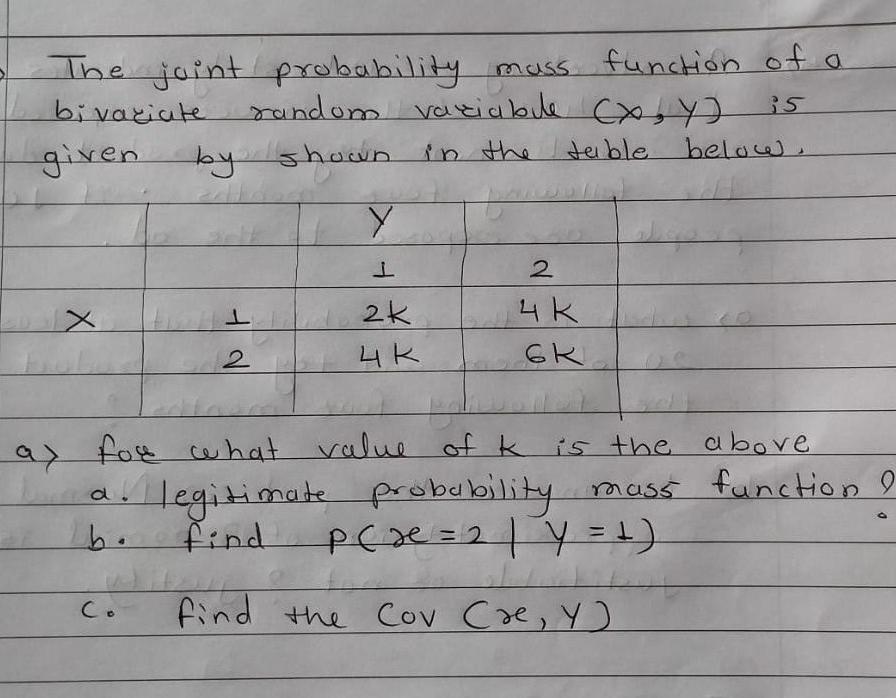 The joint probability mass function of a
bivariate random variable (X, Y) is
given by shown in the table below.
Y
1 2
X 1 2k 4k
2 4k 6k
a) for what value of k is the above
a. legitimate probability mass function ?
b. find P(x = 2 | Y = 1)
c. find the Cov (x, Y)